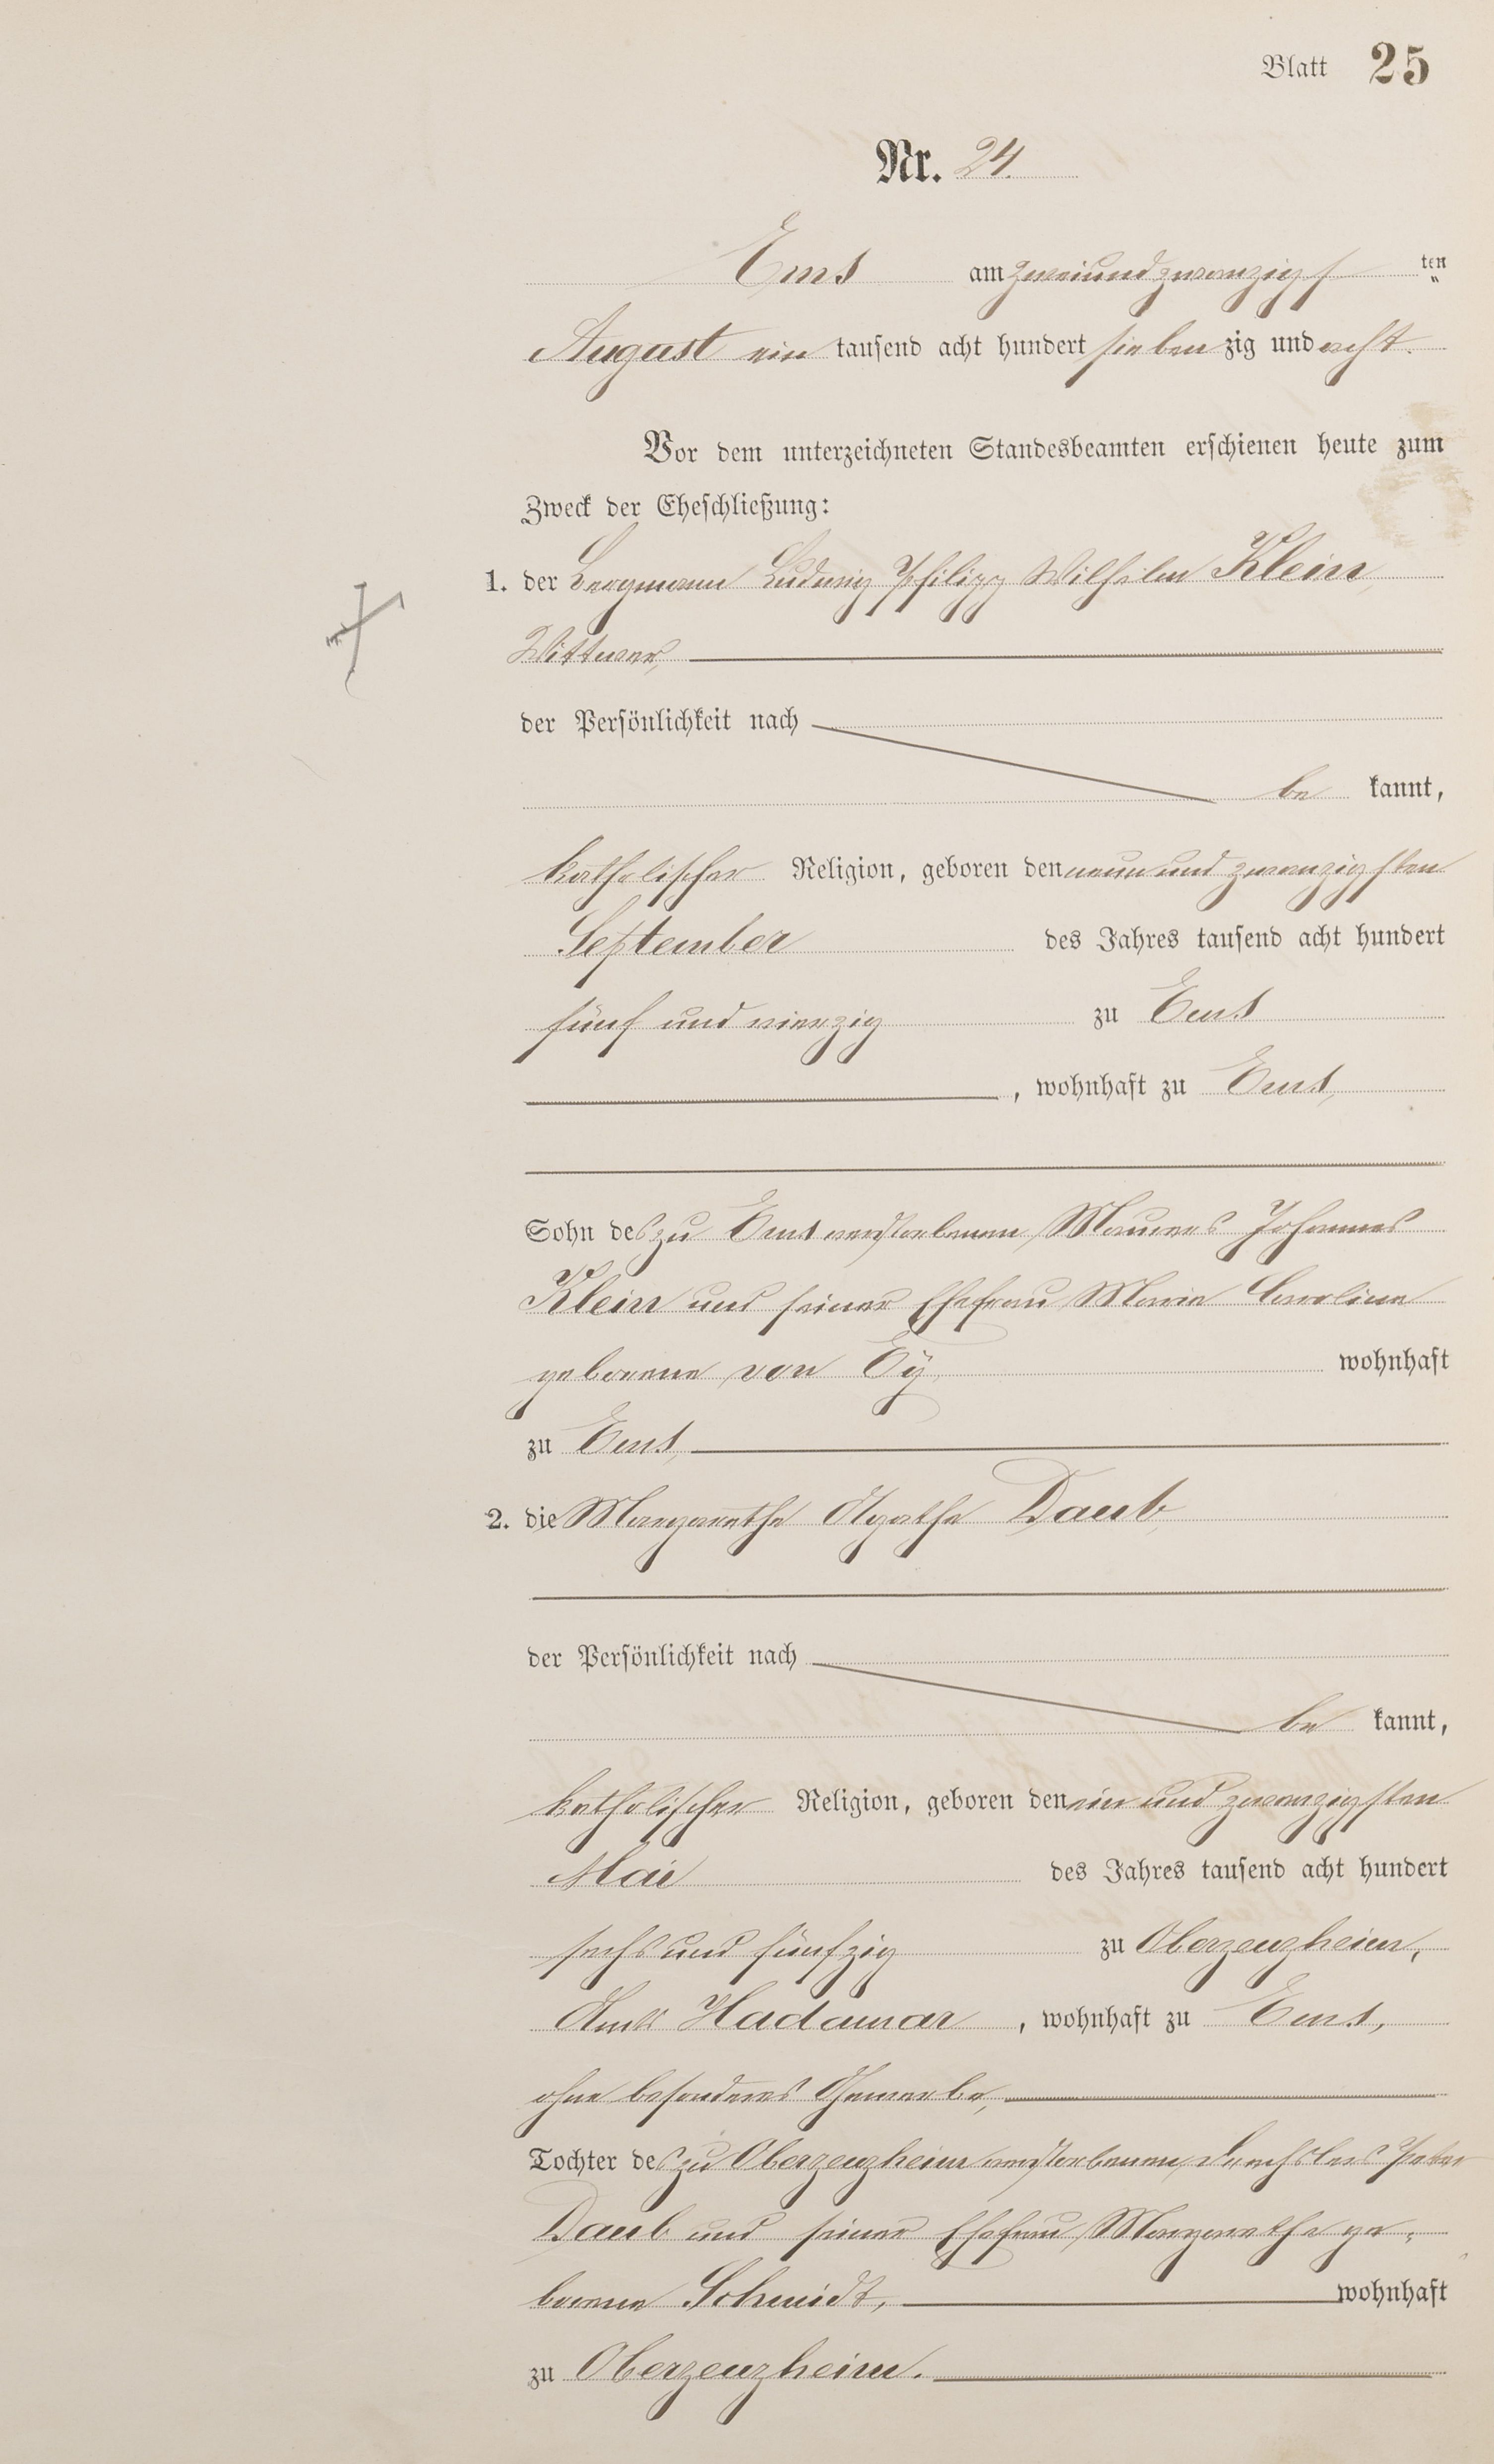 Blatt 25
Nr. 24.
Ems am zweiundzwanzigs ten
August ein tausend acht hundert sieben zig und acht.
Vor dem unterzeichneten Standesbeamten erschienen heute zum
Zweck der Eheschließung:
1. der Bergmann Ludwig Philipp Wilhelm Klein,
Wittwer,
der Persönlichkeit nach
be kannt,
katholischer Religion, geboren den neun und zwanzigsten
September des Jahres tausend acht hundert
fünf und vierzig zu Ems
, wohnhaft zu Ems,
Sohn des zu Ems verstorbenen Maurers Johannes
Klein und seiner Ehefrau Marie Caroline
geborene von Eÿ wohnhaft
zu Ems,
2. die Margarethe Agathe Daub
der Persönlichkeit nach
be kannt,
katholischer Religion, geboren den ein und zwanzigsten
Mai des Jahres tausend acht hundert
sechs und fünfzig zu Oberzeuzheim,
Amts Hadamar, wohnhaft zu Ems,
ohne besonderes Gewerbe,
Tochter des zu Oberzeuzheim verstorbenen Drechslers Peter
Daub und seiner Ehefrau Margarethe ge-
borene Schmidt, wohnhaft
zu Oberzeuzheim.